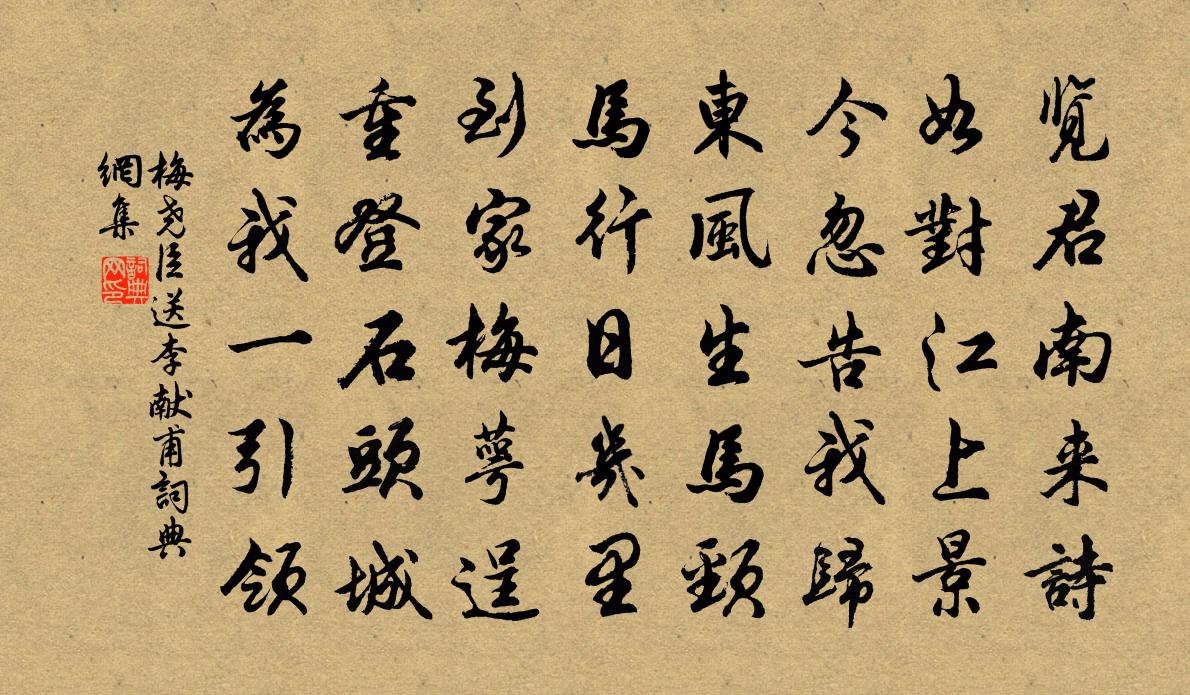 覽君南来詩
如對江上景
今忽告我歸
東風生馬頸
馬行日幾里
到家梅萼逞
重登石頭城
為我一引領
梅尧臣送李献甫詞典
網集
詞典网印